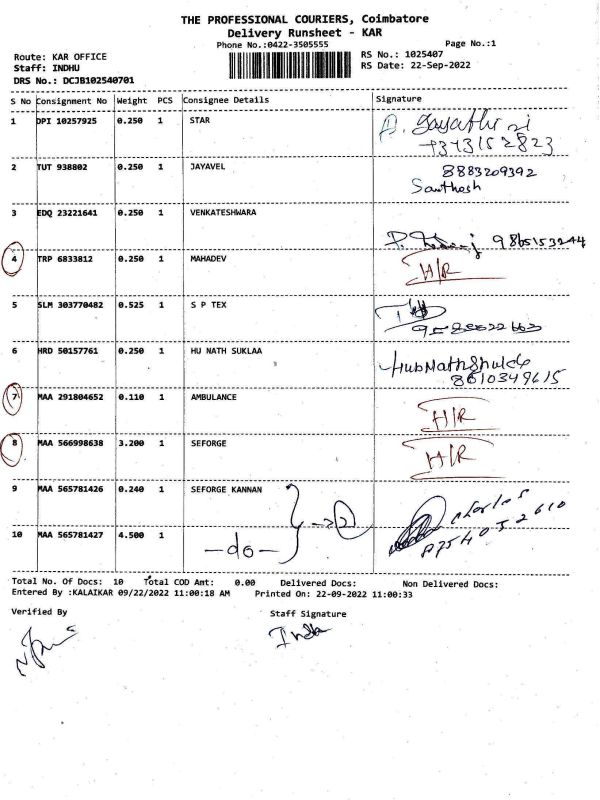 THE PROFESSIONAL COURIERS, Coimbatore
Delivery Runsheet - KAR
Phone No.:0422-3505555
Page No.:1
Route: KAR OFFICE
RS No.: 1025407
Staff: INDHU
RS Date: 22-Sep-2022
DRS No.: DCJB102540701
S No Consignment No Weight PCS Consignee Details Signature
1 DPI 10257925 0.250 1 STAR
2 TUT 938802 0.250 1 JAYAVEL 8883209392
Santhosh
3 EDQ 23221641 0.250 1 VENKATESHWARA
9865153244
4 TRP 6833812 0.250 1 MAHADEV H/R
5 SLM 303770482 0.525 1 S P TEX
6 HRD 50157761 0.250 1 HU NATH SUKLAA
8610349615
7 MAA 291804652 0.110 1 AMBULANCE H/R
8 MAA 566998638 3.200 1 SEFORGE H/R
9 MAA 565781426 0.240 1 SEFORGE KANNAN 2 charles
10 MAA 565781427 4.500 1 -do-
Total No. Of Docs: 10 Total COD Amt: 0.00 Delivered Docs: Non Delivered Docs:
Entered By :KALAIKAR 09/22/2022 11:00:18 AM Printed On: 22-09-2022 11:00:33
Verified By Staff Signature